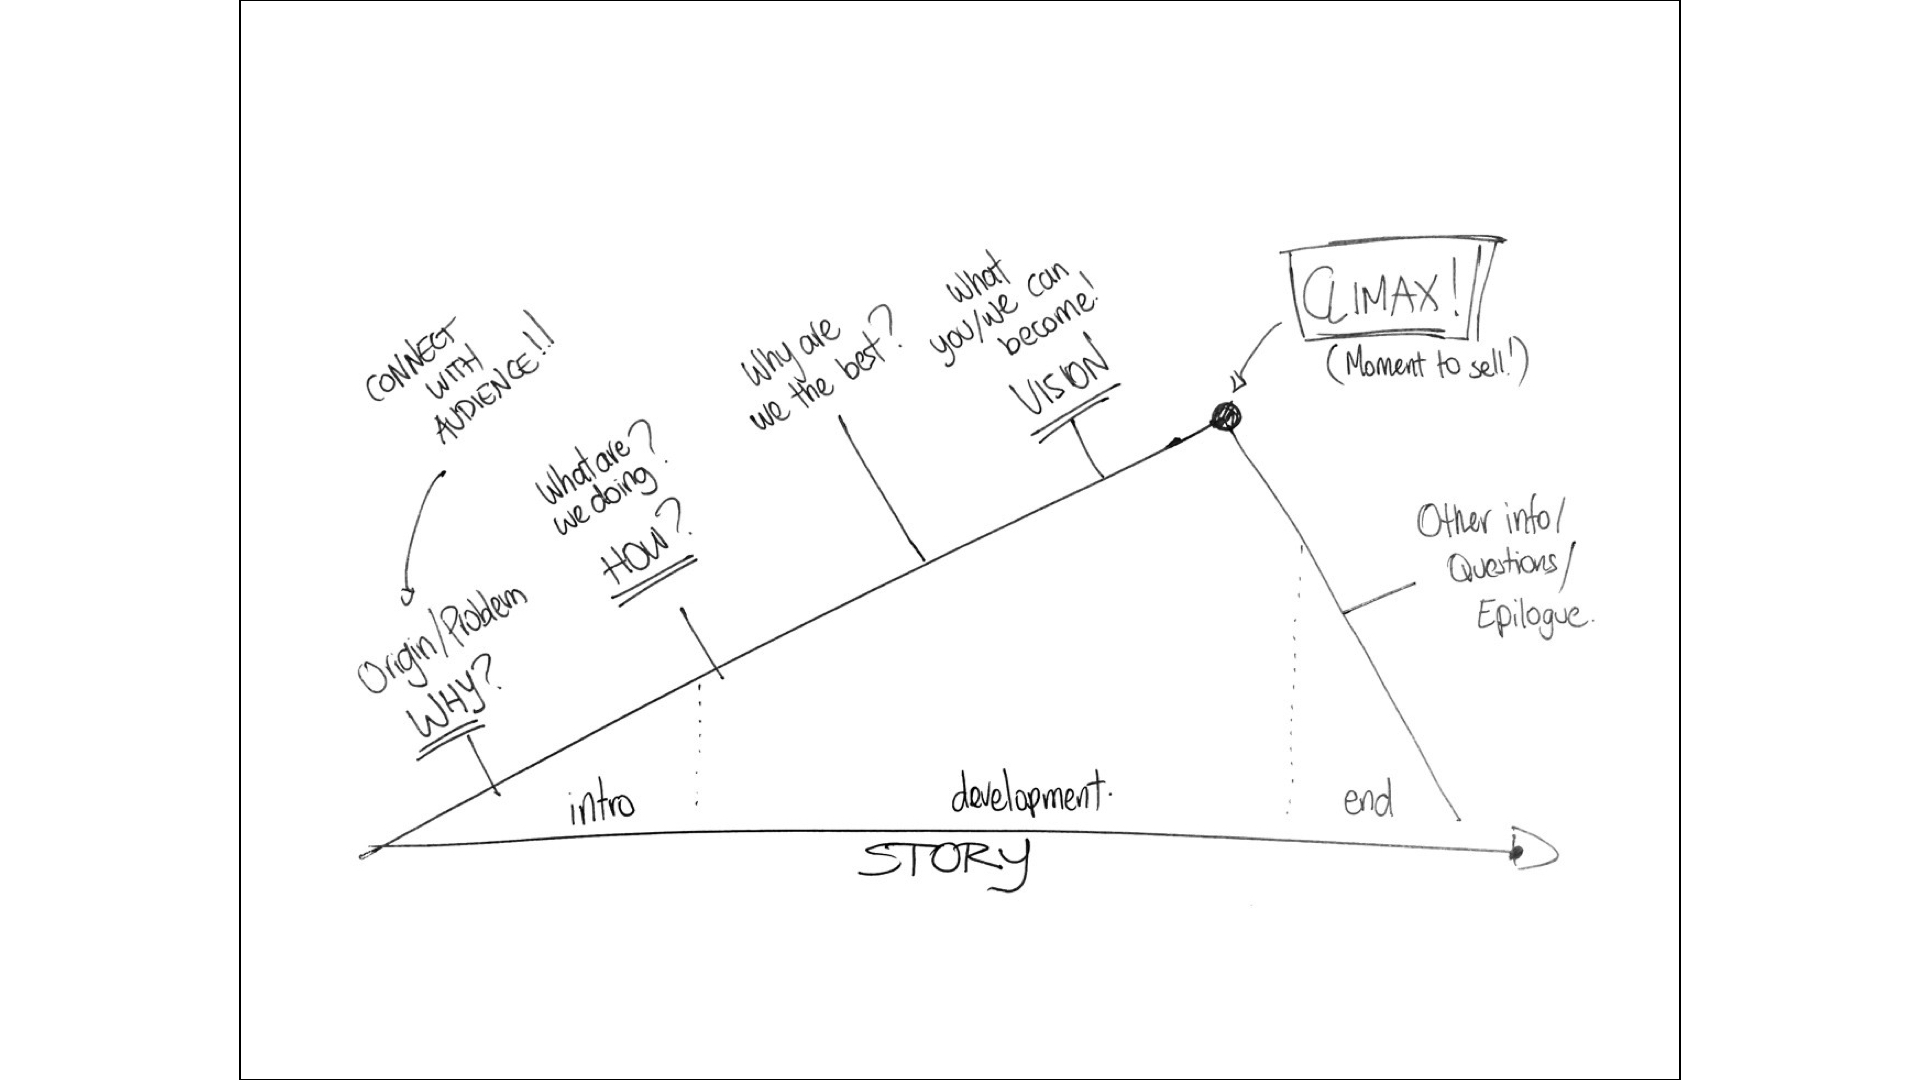 CONNECT
WITH
AUDIENCE!!
Origin/Problem
WHY?
What are?
we doing
HOW?
Why are
we the best?
What
you/we can
become!
VISION
CLIMAX!
(Moment to sell!)
Other info/
Questions/
Epilogue.
intro
development.
end
STORY